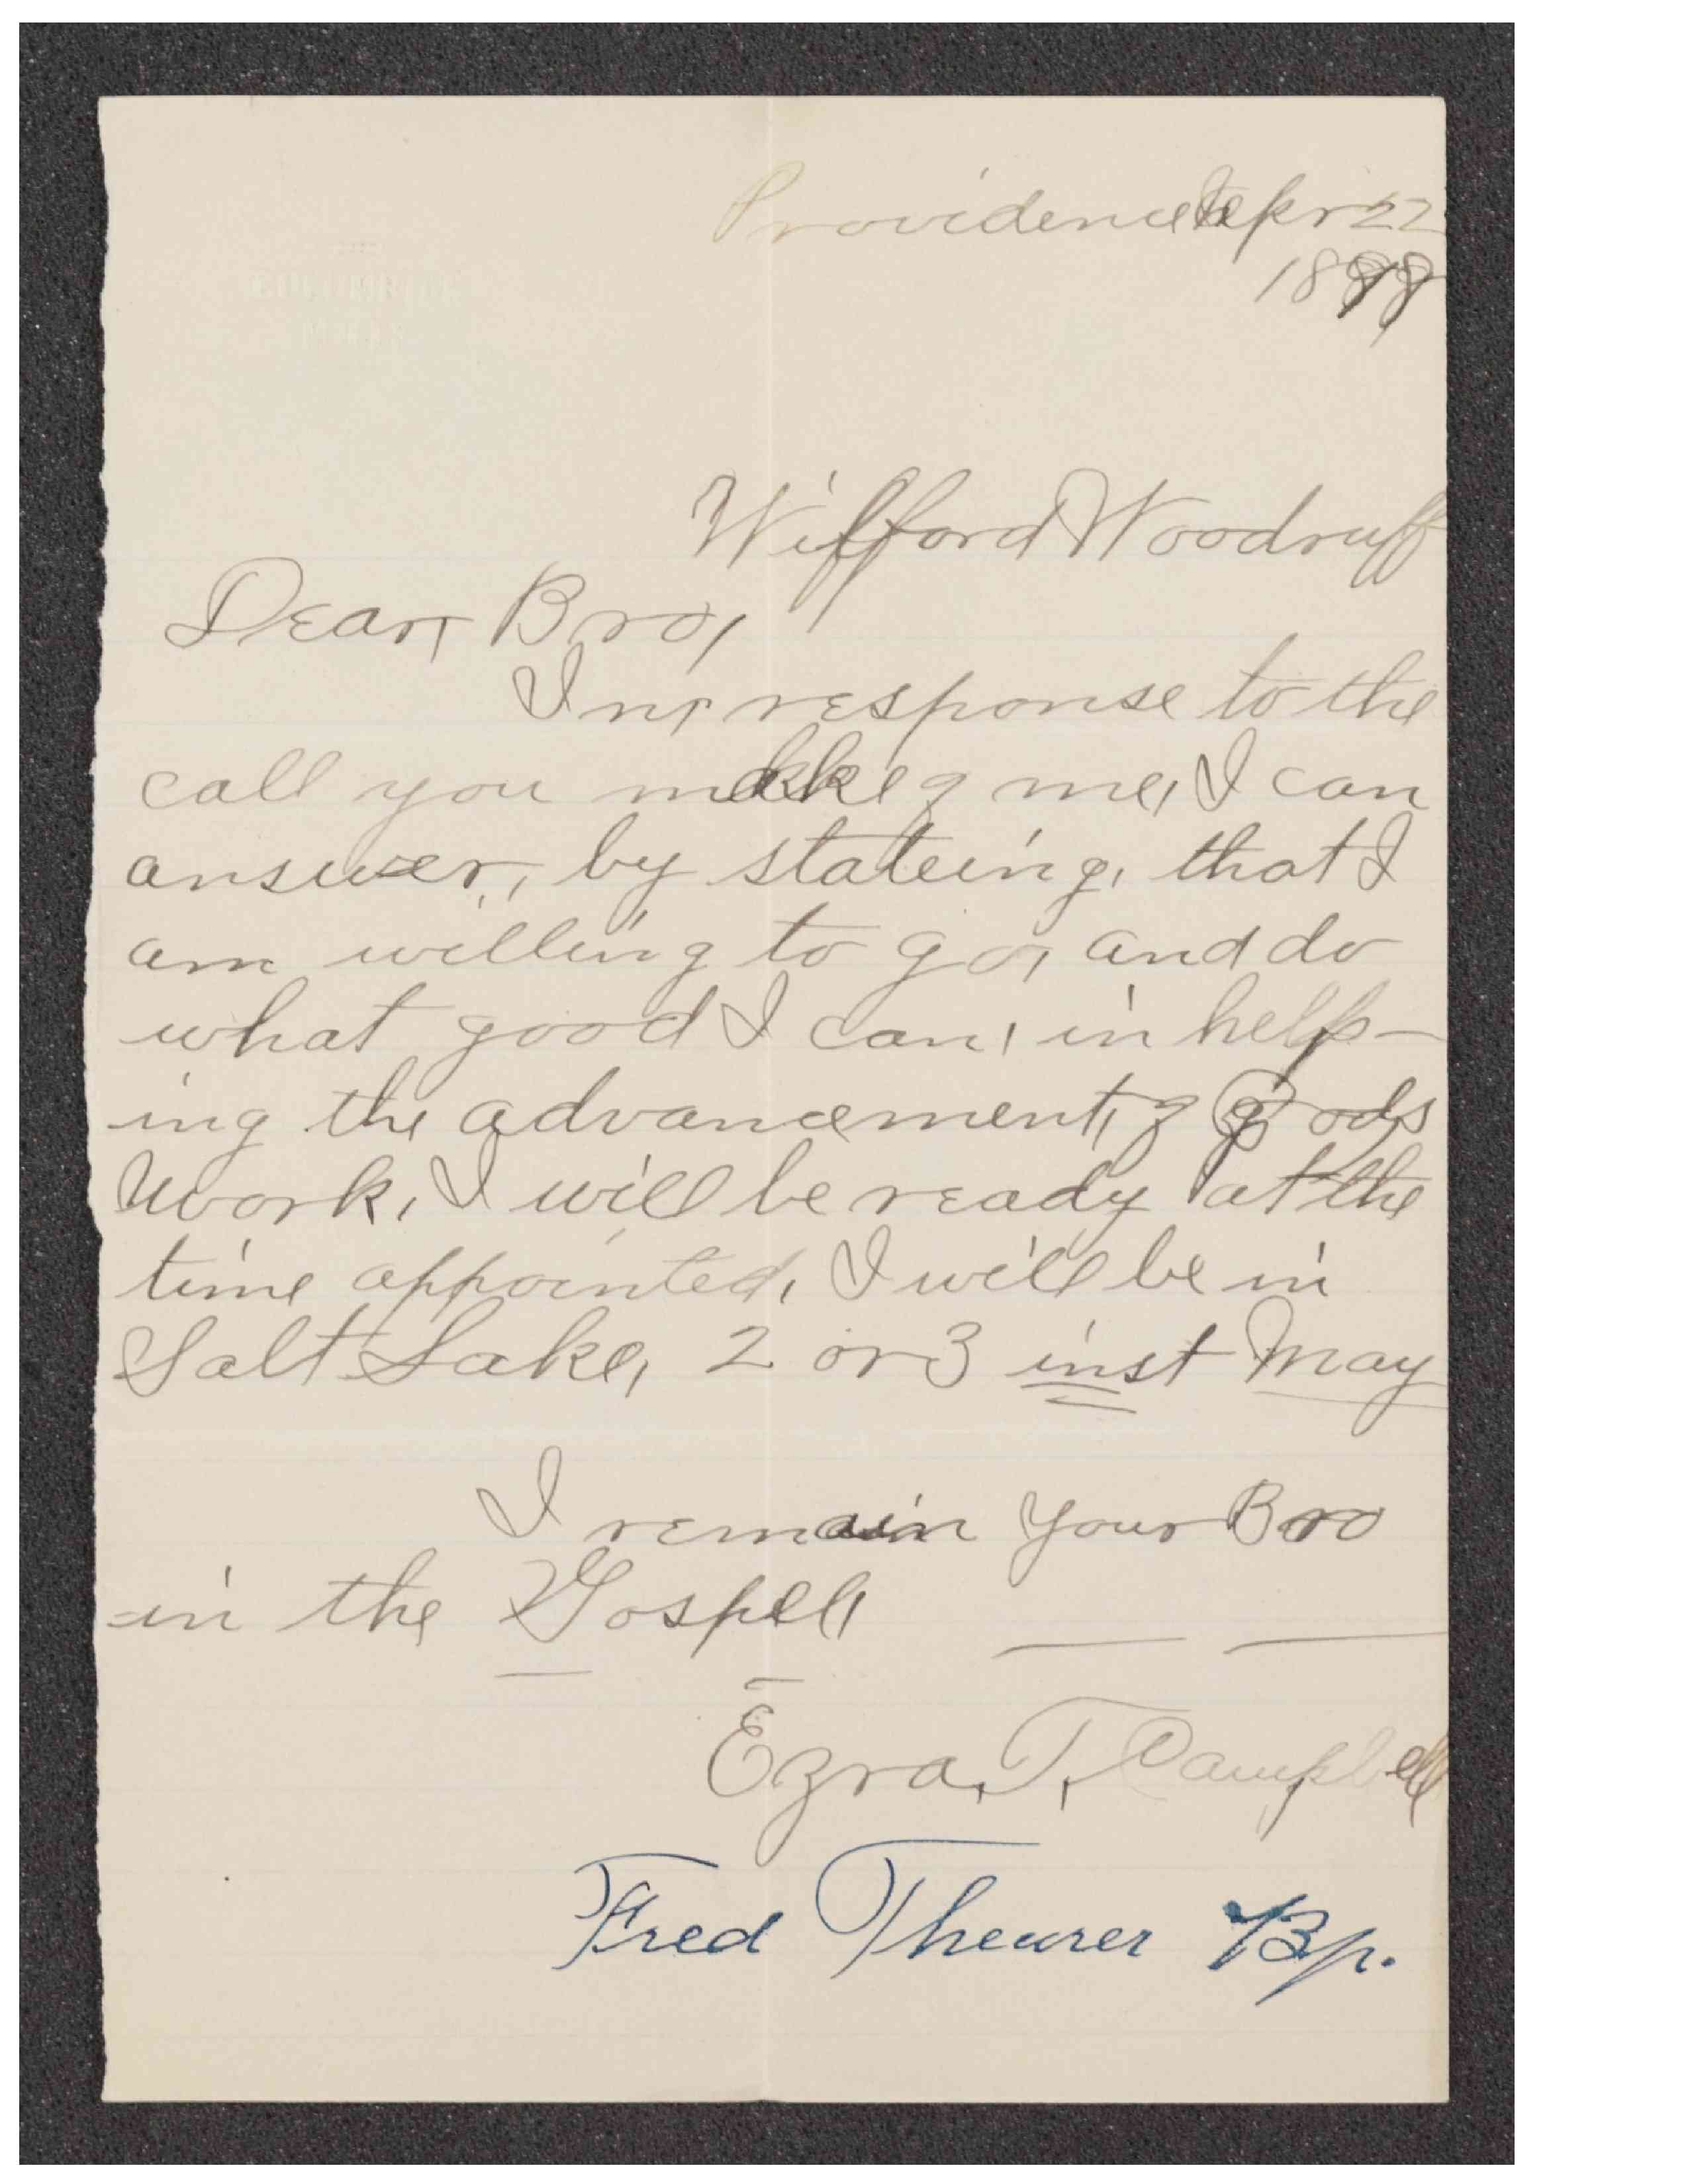 Providence Apr 22
1898
Wilford Woodruff
Dear, Bro,
In, response to the
call you make of me, I can
answer, by stateing, that I
am willing to go, and do
what good I can, in help-
ing the advancement, of Gods
work, I will be ready at the
time appointed, I will be in
Salt Lake, 2 or 3 inst May
I remain your Bro
in the Gospel,
Ezra, T, Campbell
Fred Theurer Bp.